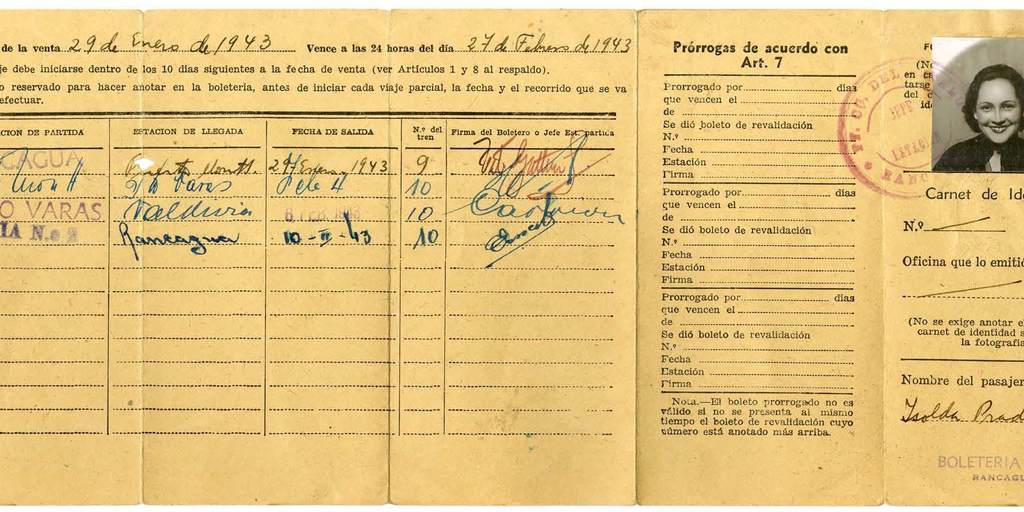 de la venta 29 de Enero de 1943 Vence a las 24 horas del día 27 de Febrero de 1943
je debe iniciarse dentro de los 10 días siguientes a la fecha de venta (ver Artículos 1 y 8 al respaldo).
o reservado para hacer anotar en la boletería, antes de iniciar cada viaje parcial, la fecha y el recorrido que se va
efectuar.
CION DE PARTIDA ESTACION DE LLEGADA FECHA DE SALIDA N.º del tren Firma del Boletero o Jefe Est. partida
CAGUA Puerto Montt. 29 Enero. 1943 9
Montt Varas Feb 4 10
O VARAS Valdivia 10
IA N.o 2 Rancagua 10-II-43 10
Prórrogas de acuerdo con
Art. 7
Prorrogado por días
que vencen el
de
Se dió boleto de revalidación
N.º
Fecha
Estación
Firma
Prorrogado por días
que vencen el
de
Se dió boleto de revalidación
N.º
Fecha
Estación
Firma
Prorrogado por días
que vencen el
de
Se dió boleto de revalidación
N.º
Fecha
Estación
Firma
Nota.—El boleto prorrogado no es
válido si no se presenta al mismo
tiempo el boleto de revalidación cuyo
número está anotado más arriba.
FF. CC. DEL
JEFE
ESTACION
RANC
FO
(No
en ca
tarse
del c
ide
Carnet de Ide
N.º
Oficina que lo emitió
(No se exige anotar el
carnet de identidad s
la fotografía
Nombre del pasajer
Isolda Prad
BOLETERIA
RANCAGU